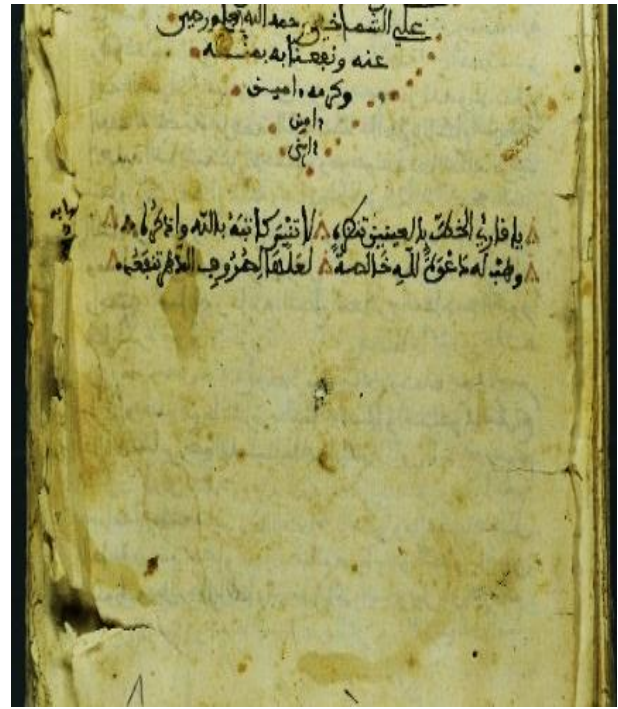 علي الشماخي رحمه الله تعالى ورضي
عنه ونفعنا به بمنه
وكرمه امين
امين
امين
يا قارئ الخط بالعينين تنظره لا تنس كاتبه بالله واذكره
وهب له دعوة لله خالصة لعلها في صروف الدهر تنفعه